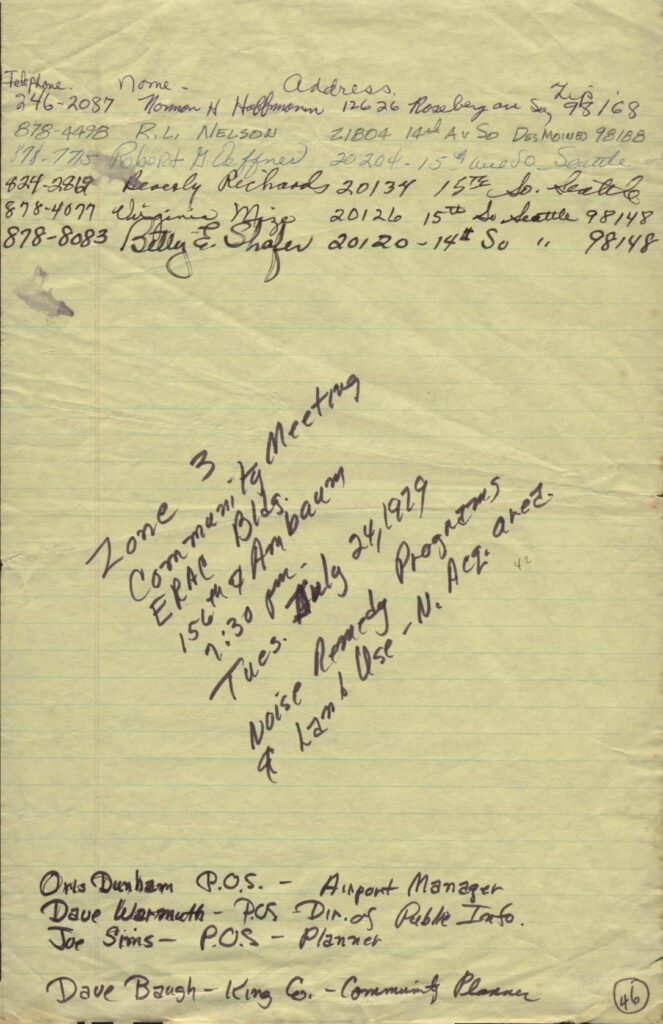 Telephone. Name - Address. Zip
246-2087 Norman H Hoffmann 12626 Roseberg av So 98168
878-4498 R.L. NELSON 21804 14th AV SO DES MOINES 98188
878-7715 Robert G 20204 - 15th ave So. Seattle
824-2812 Beverly Richards 20134 15TH So. Seattle
878-4077 Virginia Mize 20126 15th So Seattle 98148
878-8083 Betty E. Shafer 20120 - 14th So " 98148
Zone 3
Community Meeting
ERAC Bldg.
156th & Ambaum
7:30 pm.
Tues. July 24, 1979
Noise Remedy Programs
& Land Use - N. Acq. area.
42
Oris Dunham P.O.S. - Airport Manager
Dave Warmuth - POS Dir. of Public Info.
Joe Sims - P.O.S - Planner
Dave Baugh - King Co. - Community Planner
46